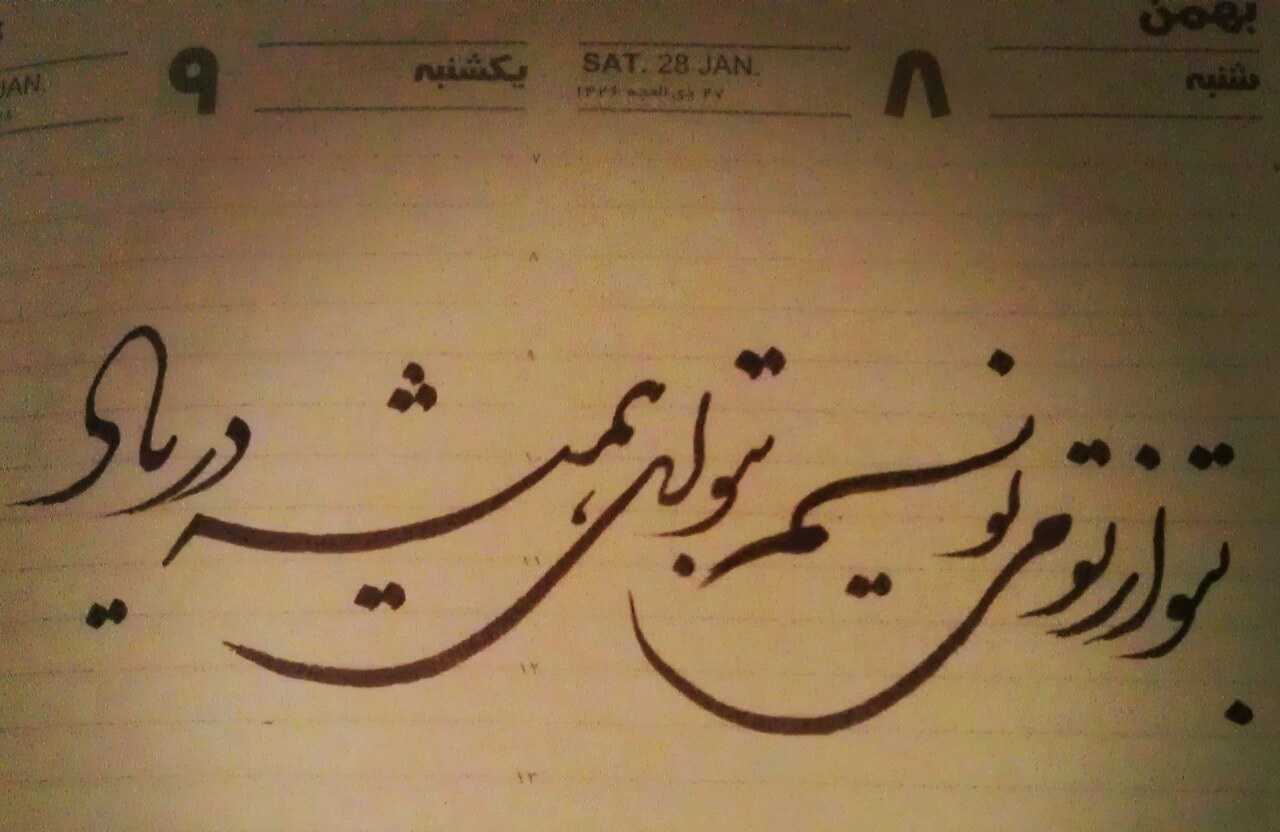 بهمن
شنبه ۸ SAT. 28 JAN. یکشنبه ۹ JAN.
۲۷ ذی الحجه ۱۴۲۶
۷
۸
۹
۱۰
۱۱
۱۲
۱۳
بتو از تو می نویسم بتو ای همیشه دریای